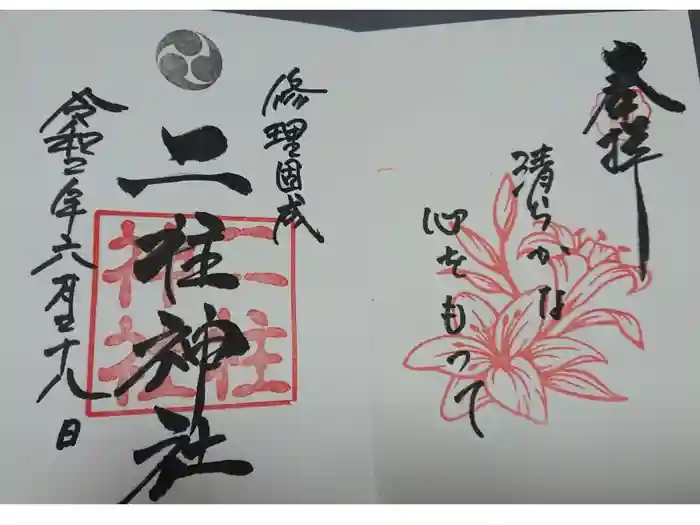 奉拝
清らかな
心をもって
修理固成
二柱神社
二柱
神社
令和二年六月二十八日